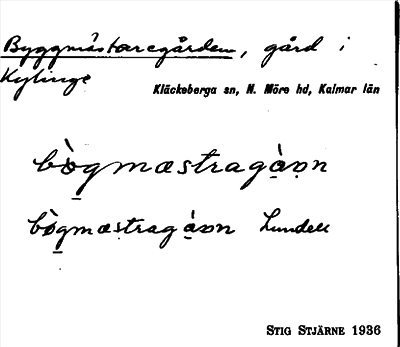 Byggmästaregården, gård i
Kylinge
Kläckeberga sn, N. Möre hd, Kalmar län
bògmæstragàvn
bògmæstragàvn Lundell
STIG STJÄRNE 1936